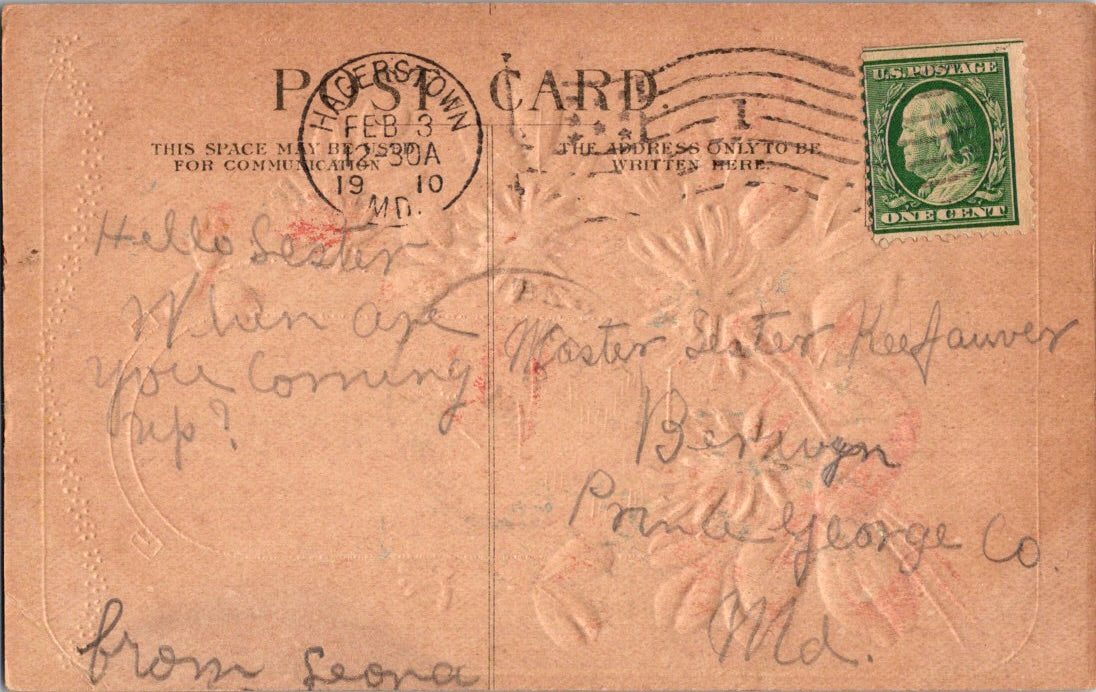 POST CARD.
HAGERSTOWN
FEB 3
12-30A
19 10
MD.
1
U.S. POSTAGE
ONE CENT
THIS SPACE MAY BE USED
FOR COMMUNICATION
THE ADDRESS ONLY TO BE
WRITTEN HERE.
Hello Lester
When are
you Coming
up?
from Leona
Master Lester Keefauver
Berwyn
Prince George Co.
Md.